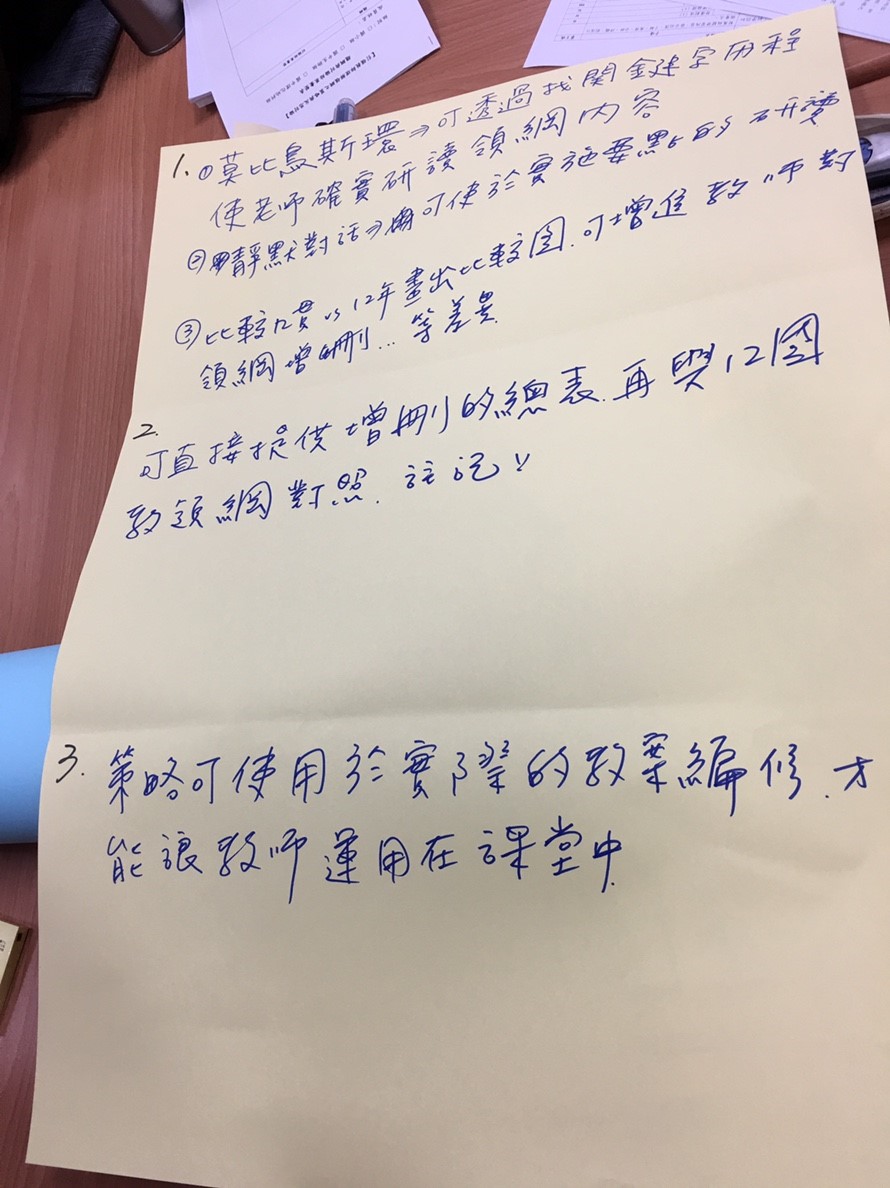 1. ①莫比烏斯環⇒可透過找關鍵字用程
使老師確實研讀領綱內容
②靜默對話⇒可使於實施要點的研讀
③比較九貫vs12年畫出比較圖.可增進教師對
領綱增刪...等差異
2.
可直接提供增刪的總表.再與12國
教領綱對照.註記!!
3. 策略可使用於實際的教案編修.才
能讓教師運用在課堂中.